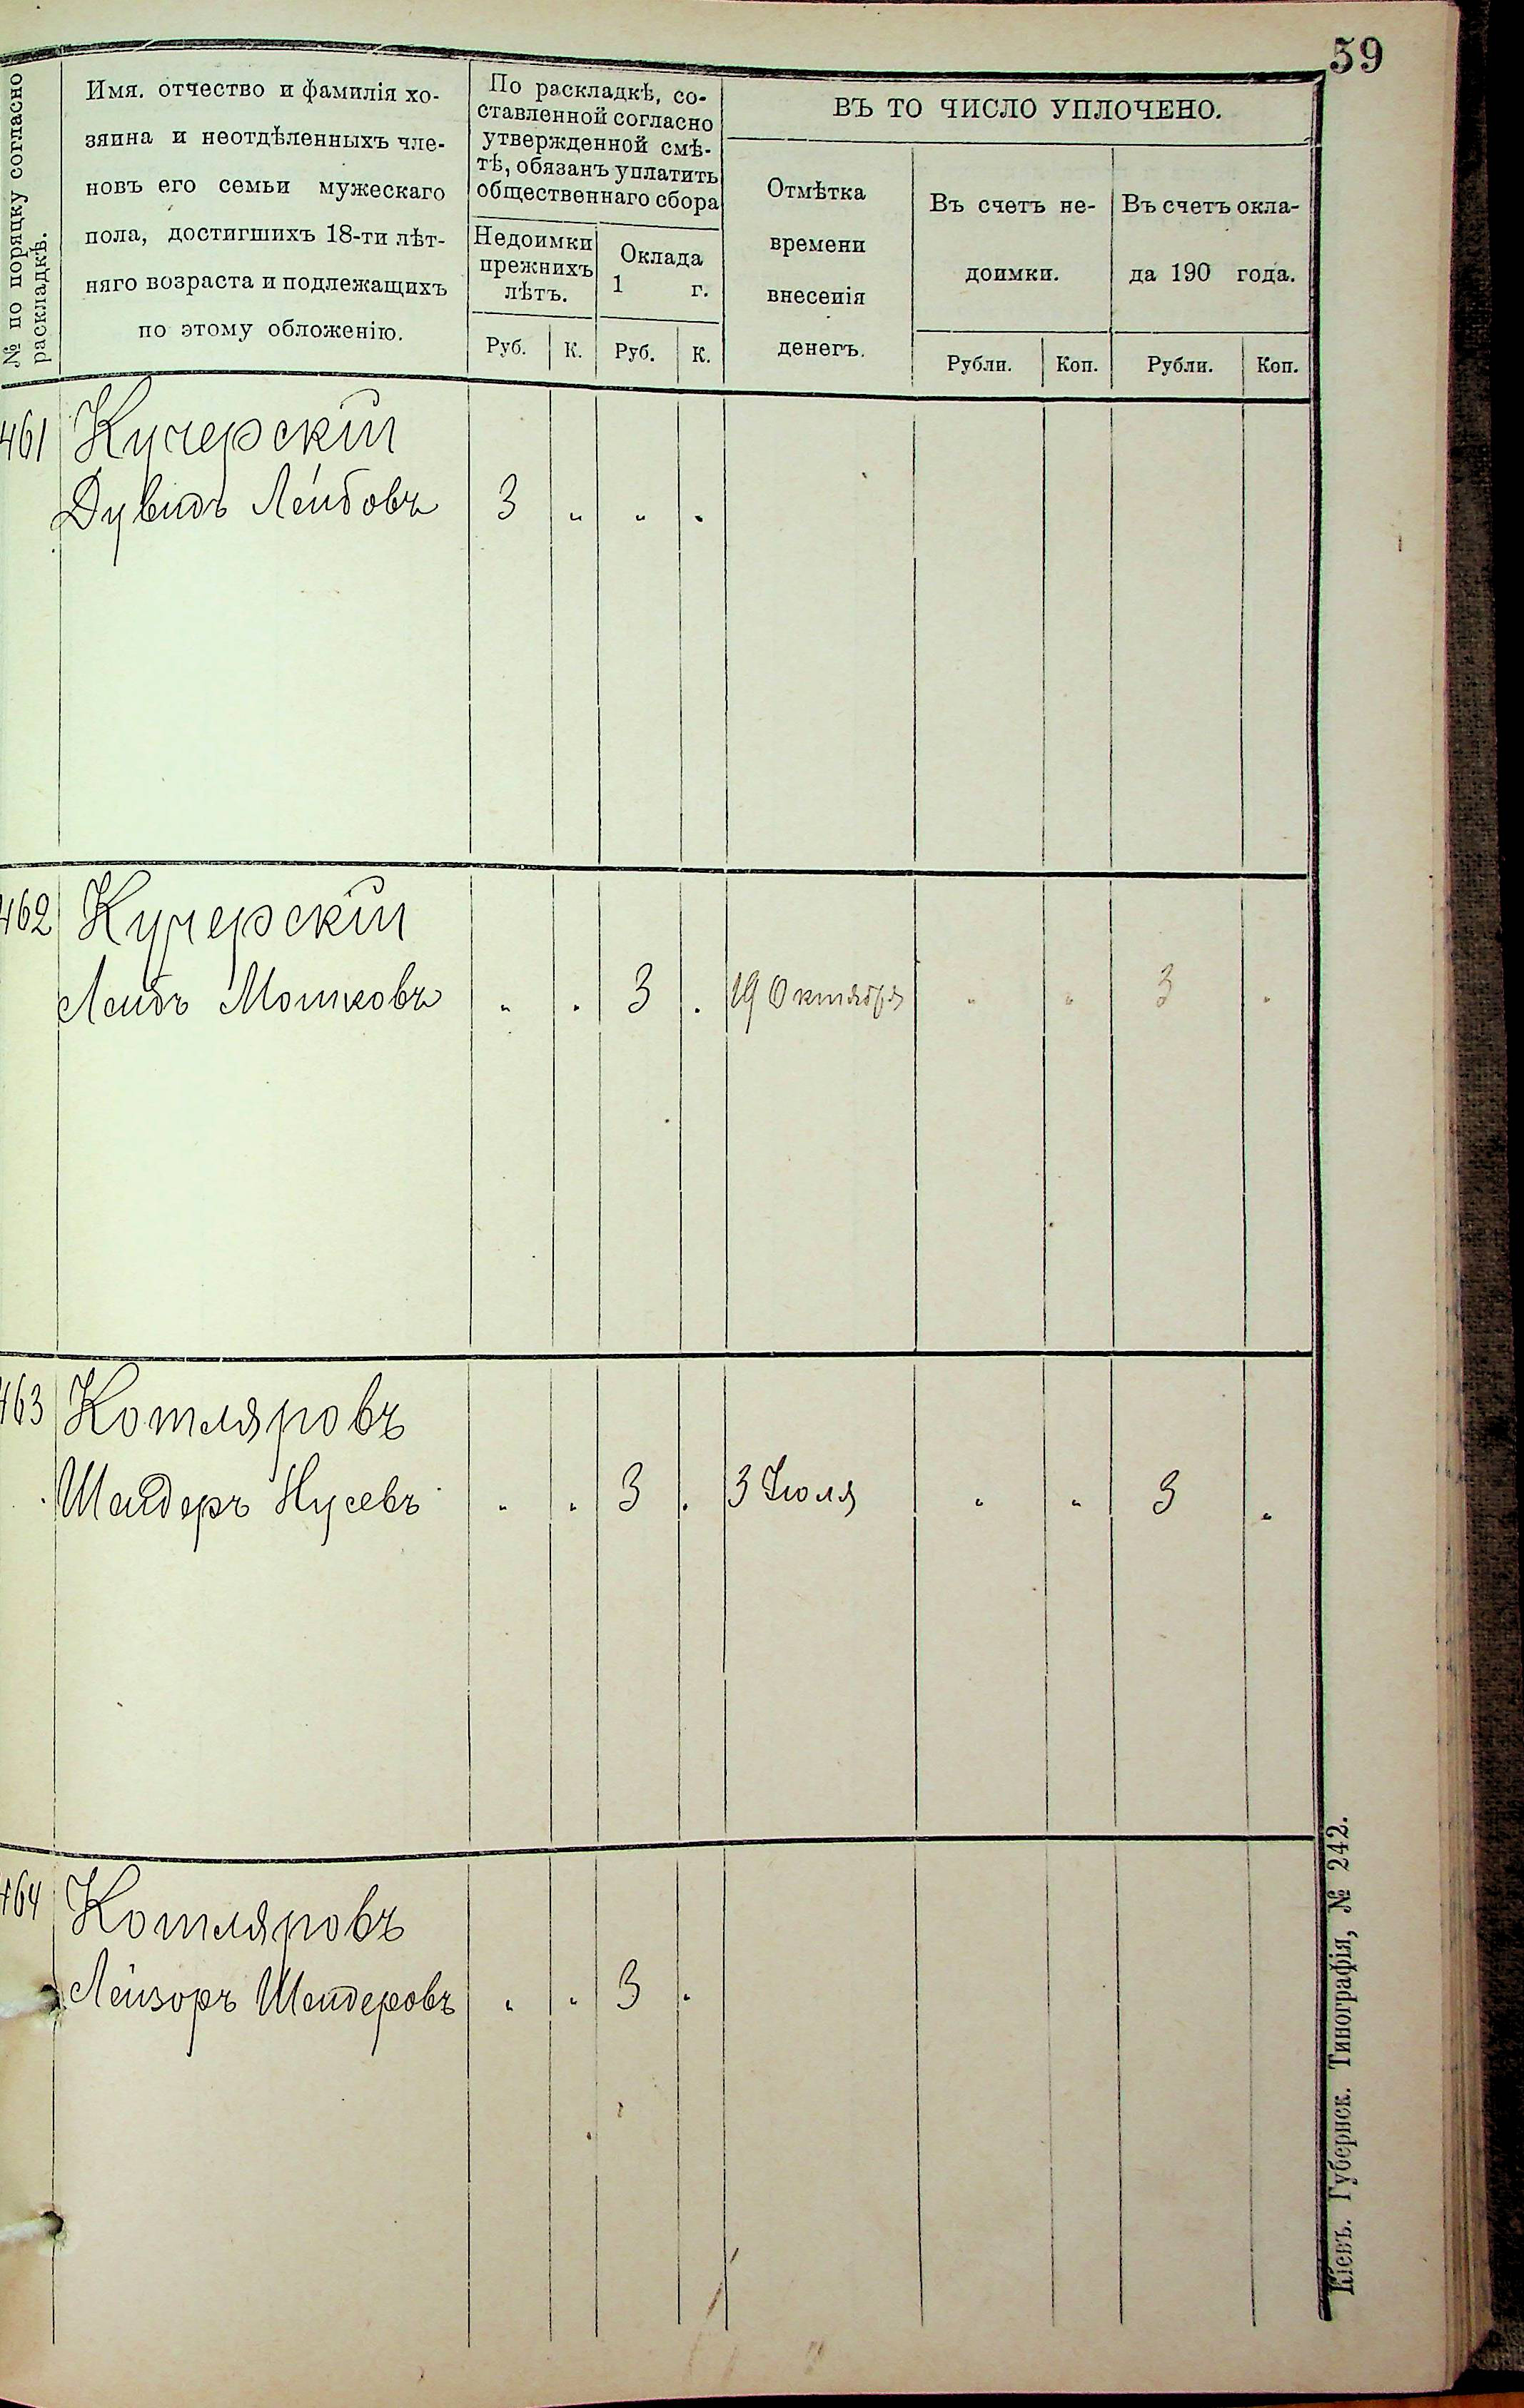 59
№ по порядку согласно
раскладкѣ.
Имя. отчество и фамилія хо-
зяина и неотдѣленныхъ чле-
новъ его семьи мужескаго
пола, достигшихъ 18-ти лѣт-
няго возраста и подлежащихъ
по этому обложенію.
По раскладкѣ, со-
ставленной согласно
утвержденной смѣ-
тѣ, обязанъ уплатить
общественнаго сбора
Недоимки
прежнихъ
лѣтъ.
Оклада
1 г.
Руб. К. Руб. К.
ВЪ ТО ЧИСЛО УПЛОЧЕНО.
Отмѣтка
времени
внесенія
денегъ.
Въ счетъ не-
доимки.
Въ счетъ окла-
да 190 года.
Рубли. Коп. Рубли. Коп.
461 Кучерскій
Дувидъ Лейбовъ 3 „ „ „
462 Кучерскій
Лейбъ Мошковъ „ „ 3 „ 19 Октября „ „ 3 „
463 Котляровъ
Шендеръ Нусевъ „ „ 3 „ 3 Іюля „ „ 3 „
464 Котляровъ
Лейзоръ Шендеровъ „ „ 3 „
Кіевъ. Губернск. Типографія, № 242.